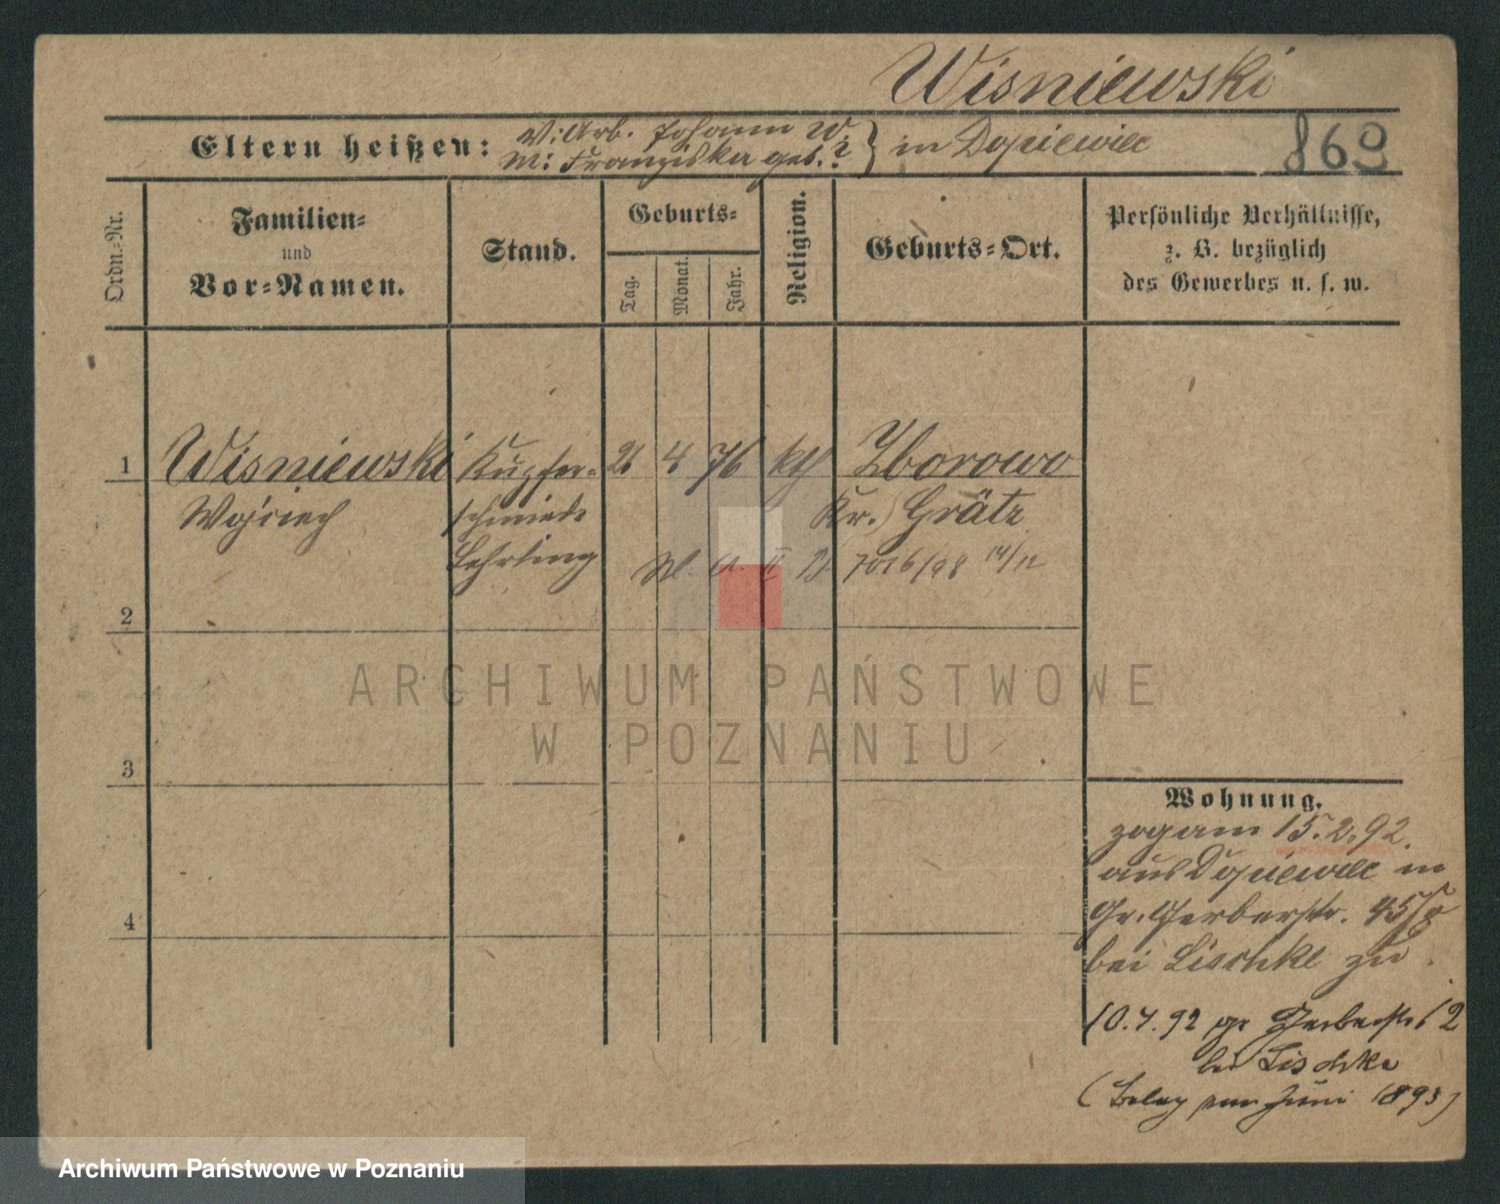 Wisniewski
Eltern heißen: V: Arb. Johann W. } in Dopiewiec
M: Franziska geb. ?
869
Ordn.-Nr.
Familien-
und
Vor-Namen.
Stand.
Geburts-
Tag.
Monat.
Jahr.
Religion.
Geburts-Ort.
Persönliche Verhältnisse,
z. B. bezüglich
des Gewerbes u. s. w.
1 Wisniewski Kupfer- 4 76 kth Zborowo
Wojciech schmiede Kr. Grätz
Lehrling
7026/98 14/12
2
3
4
Wohnung.
zog am 15.2.92.
aus Dopiewiec in
Gr. Gerberstr.
bei Lischke zu.
10.4.92 gr Gerberstr
bei Lischke
(Beleg vom Juni 1893)
ARCHIWUM PAŃSTWOWE
W POZNANIU
Archiwum Państwowe w Poznaniu